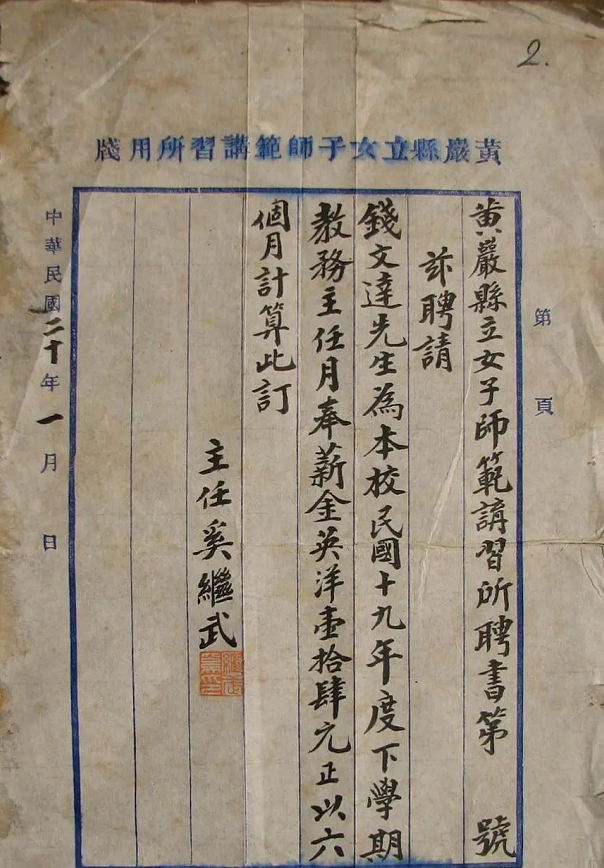 2.
黃巖縣立女子師範講習所用牋
第 頁
黃巖縣立女子師範講習所聘書第 號
茲聘請
錢文達先生為本校民國十九年度下學期
教務主任月奉薪金英洋壹拾肆元正以六
個月計算此訂
主任奚繼武
中華民國二十年一月 日